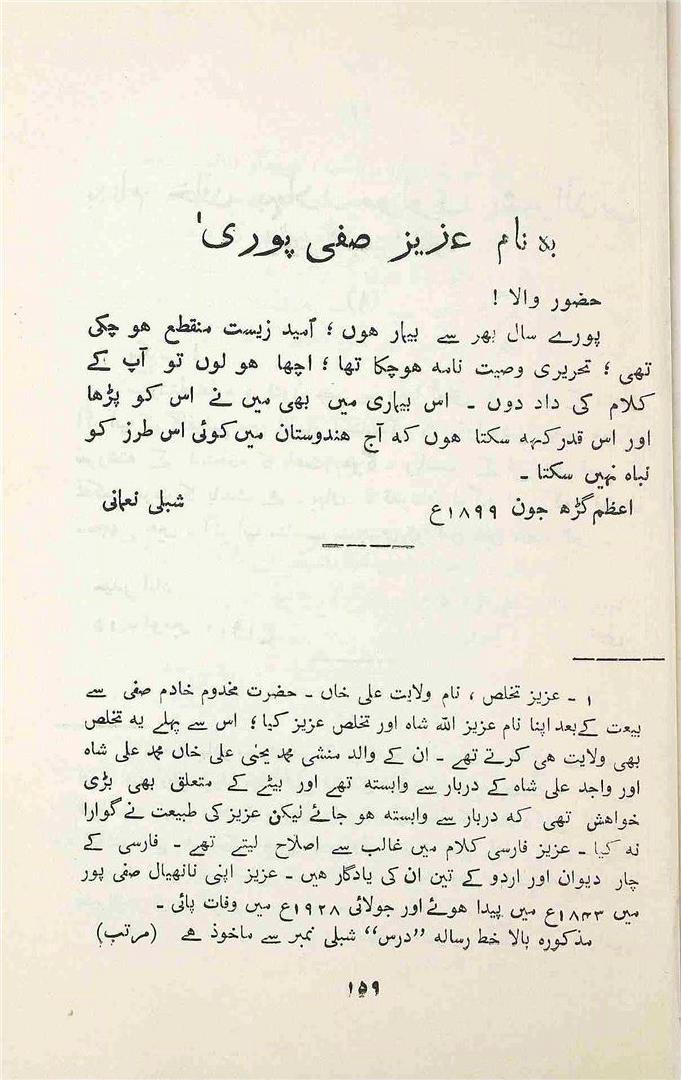 بہ نام عزیز صفی پوری¹
حضور والا !
پورے سال بھر سے بیمار ہوں ؛ امید زیست منقطع ہو چکی
تھی ؛ تحریری وصیت نامہ ہوچکا تھا ؛ اچھا ہو لوں تو آپ کے
کلام کی داد دوں ۔ اس بیماری میں بھی میں نے اس کو پڑھا
اور اس قدر کہہ سکتا ہوں کہ آج ہندوستان میں کوئی اس طرز کو
نباہ نہیں سکتا ۔
اعظم گڑھ جون ۱۸۹۹ع شبلی نعمانی
۱ ۔ عزیز تخلص ، نام ولایت علی خاں ۔ حضرت مخدوم خادم صفی سے
بیعت کے بعد اپنا نام عزیز اللہ شاہ اور تخلص عزیز کیا ؛ اس سے پہلے یہ تخلص
بھی ولایت ہی کرتے تھے ۔ ان کے والد منشی محمد یحیٰی علی خاں محمد علی شاہ
اور واجد علی شاہ کے دربار سے وابستہ تھے اور بیٹے کے متعلق بھی بڑی
خواہش تھی کہ دربار سے وابستہ ہو جائے لیکن عزیز کی طبیعت نے گوارا
نہ کیا ۔ عزیز فارسی کلام میں غالب سے اصلاح لیتے تھے ۔ فارسی کے
چار دیوان اور اردو کے تین ان کی یادگار ہیں ۔ عزیز اپنی نانھیال صفی پور
میں ۱۸۴۳ع میں پیدا ہوئے اور جولائی ۱۹۲۸ع میں وفات پائی ۔
مذکورہ بالا خط رسالہ ”درس“ شبلی نمبر سے ماخوذ ہے (مرتب)
۱۵۹